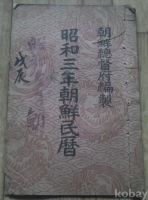 朝鮮總督府編製
昭和三年朝鮮民暦
戊辰
朝
kobay